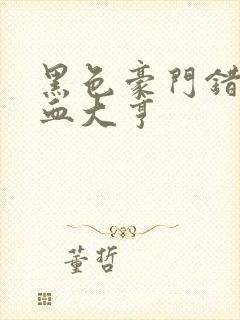 黑色豪門錯
血大亨
董哲